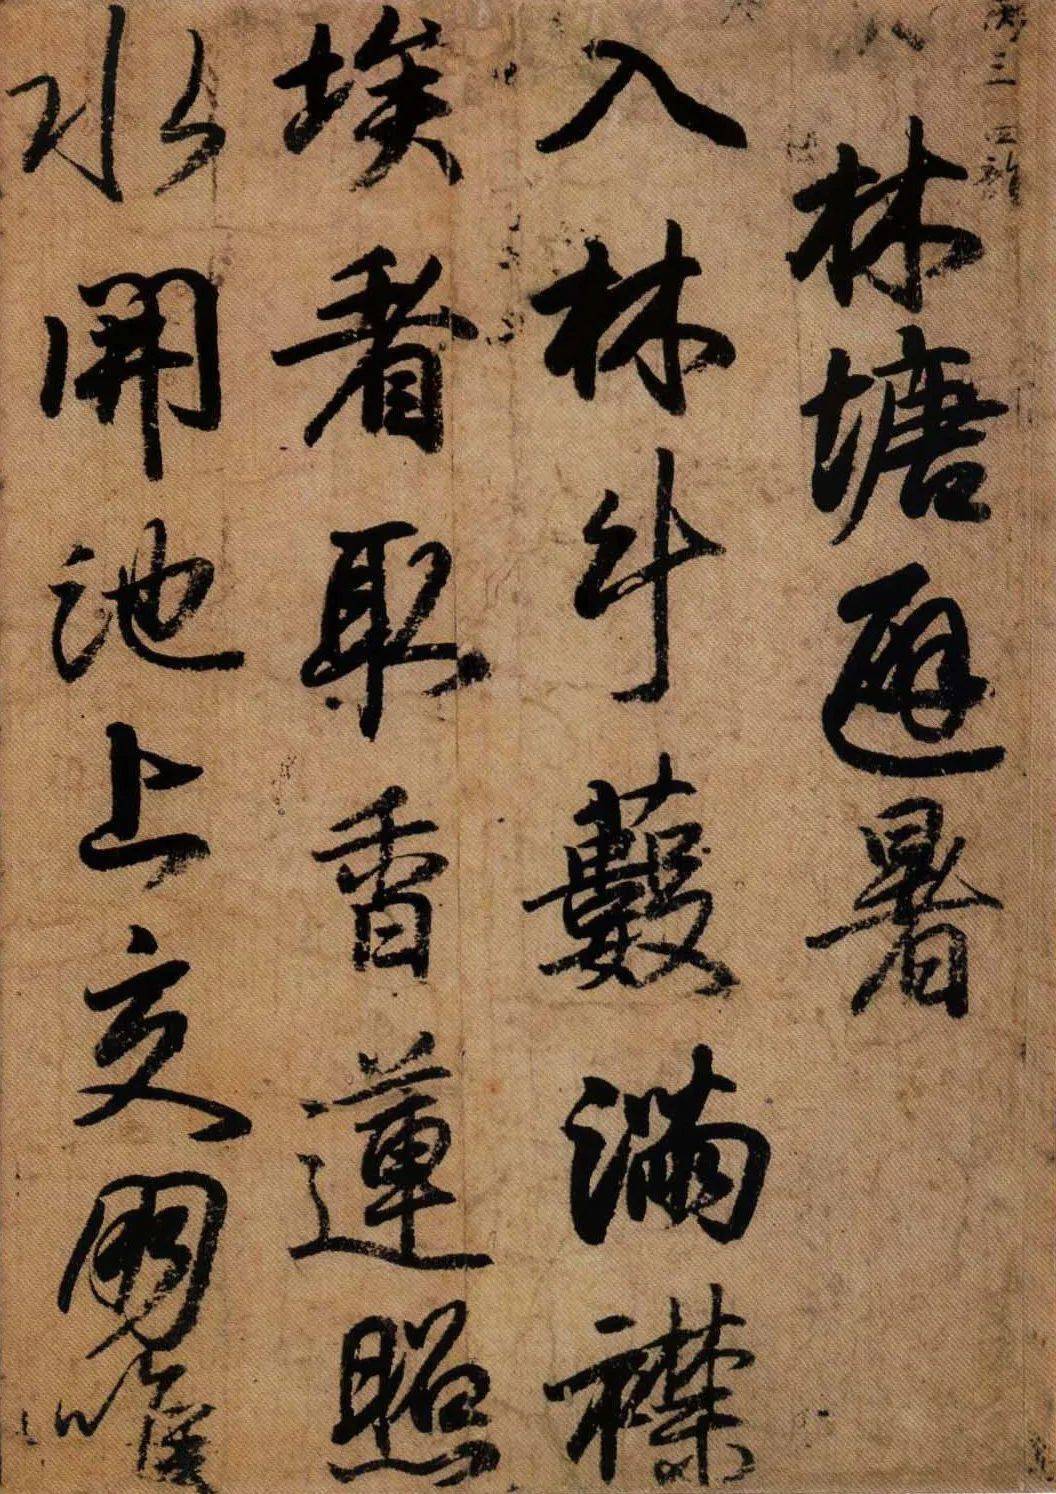 林塘避暑
入林斗藪滿襟
埃看取香蓮照
水開池上